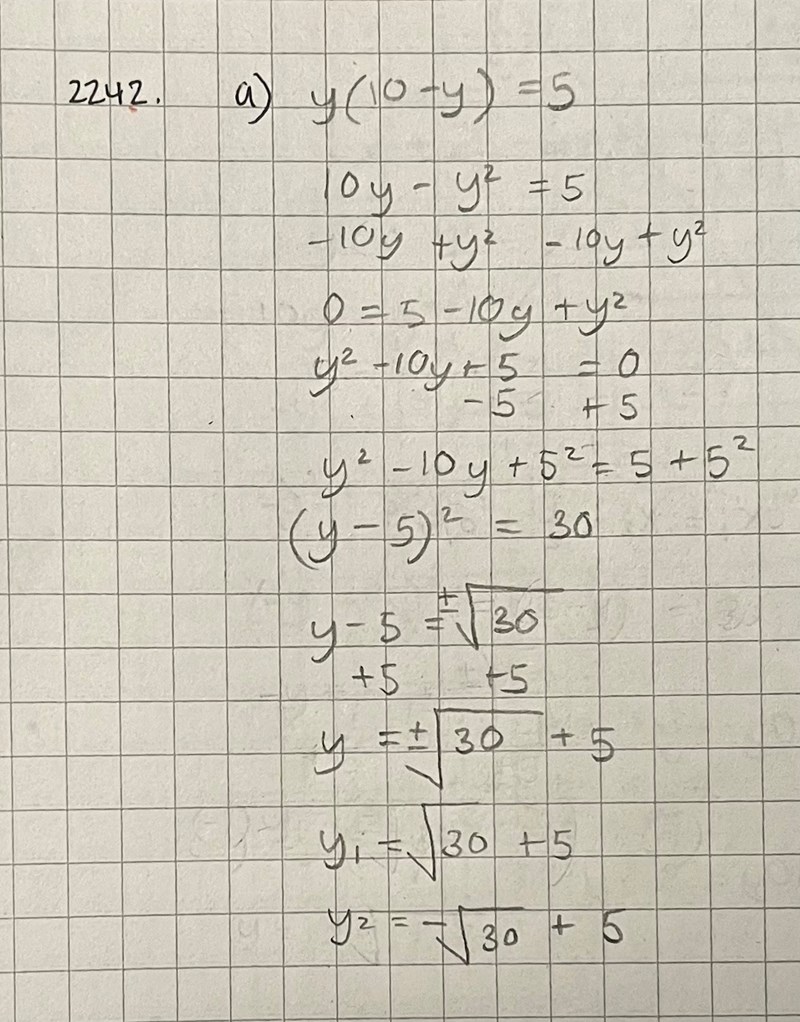 2242. a) y(10-y) = 5
10y - y² = 5
-10y +y² -10y + y²
0 = 5 -10y + y²
y² -10y + 5 = 0
-5 + 5
y² -10y + 5² = 5 + 5²
(y - 5)² = 30
y - 5 = ±√30
+5 +5
y = ±√30 + 5
y₁ = √30 + 5
y₂ = -√30 + 5